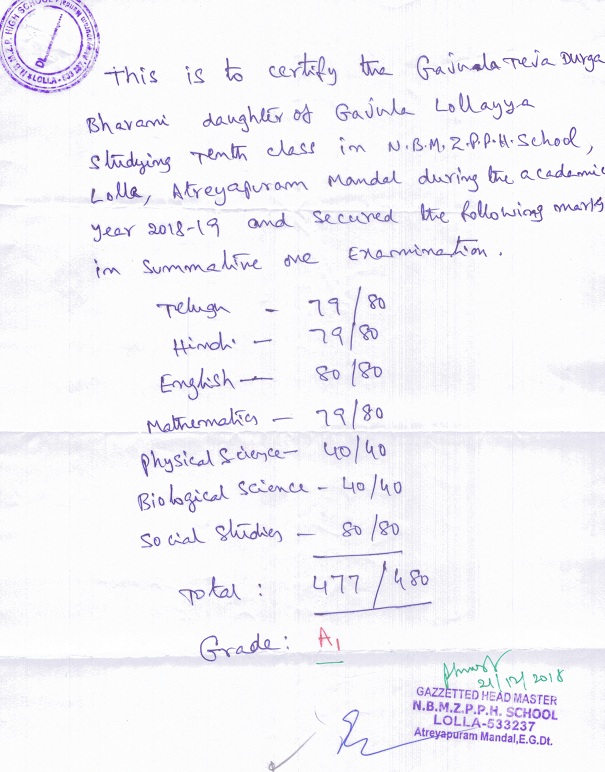 N.B.M.Z.P.P. HIGH SCHOOL
LOLLA-533 237
This is to certify the Gavunala Teja Durga
Bhavani daughter of Gavula Lollayya
Studying Tenth class in N.B.M.Z.P.P.H. School,
Lolla, Atreyapuram Mandal during the academic
year 2018-19 and secured the following marks
in Summative one Examination.
Telugu - 79/80
Hindi - 79/80
English - 80/80
Mathematics - 79/80
Physical Science - 40/40
Biological Science - 40/40
Social Studies - 80/80
Total : 477/480
Grade : A1
21/12/2018
GAZZETTED HEAD MASTER
N.B.M.Z.P.P.H. SCHOOL
LOLLA-533237
Atreyapuram Mandal,E.G.Dt.